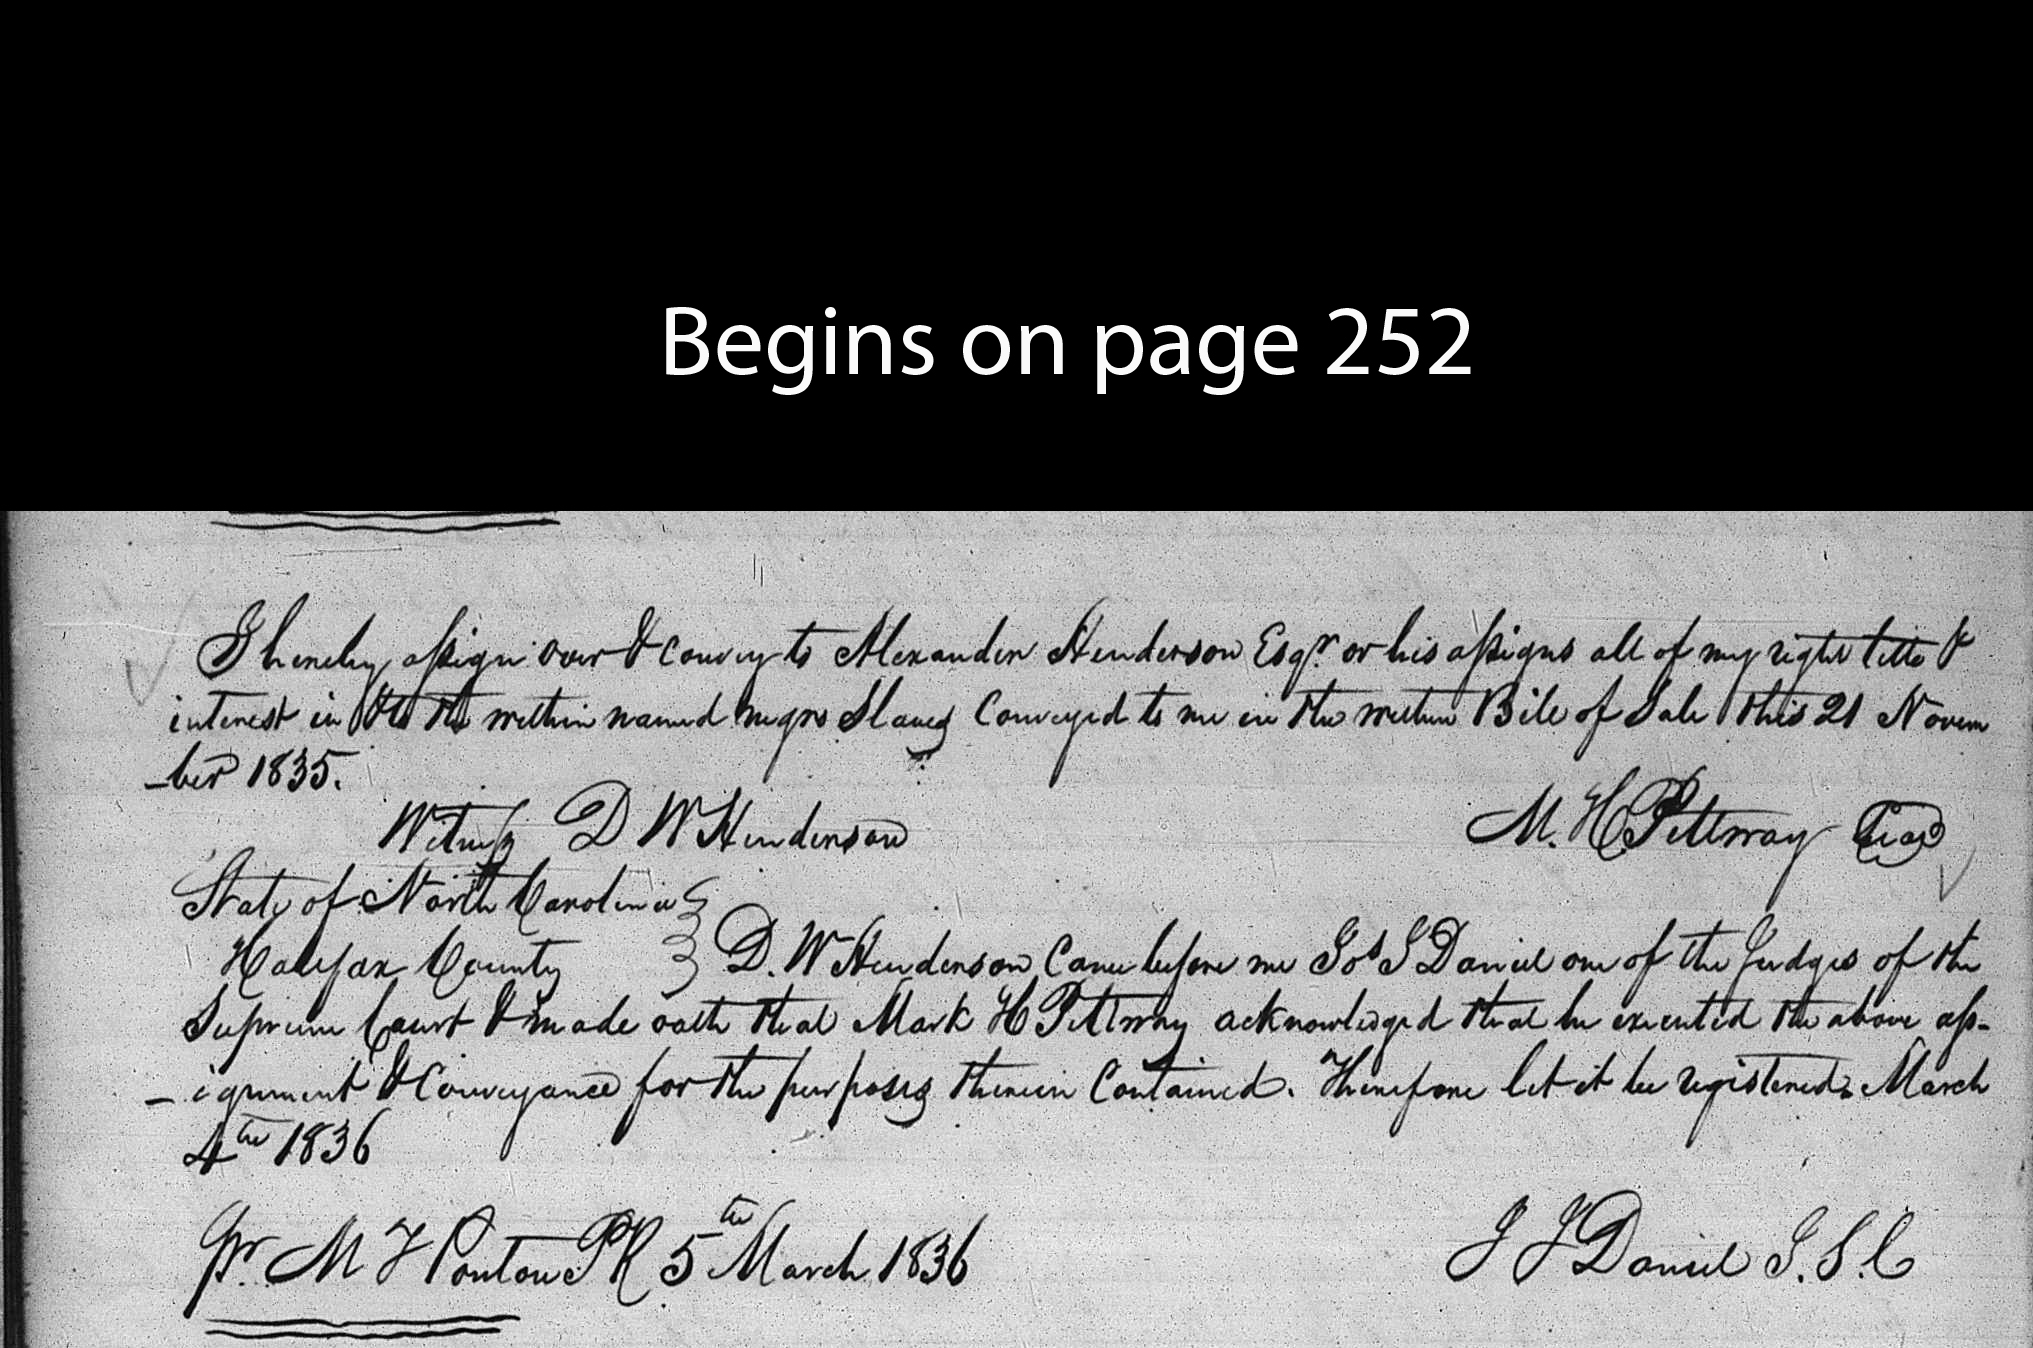 Begins on page 252
I hereby assign over & convey to Alexander Henderson Esqr. or his assigns all of my right title &
interest in & to the within named negro Slaves Conveyed to me in the within Bill of Sale this 21 Novem
-ber 1835.
Witness D W Henderson M. H Pettway Seal
State of North Carolina
Halifax County } D. W Henderson Came before me Jos J Daniel one of the Judges of the
Supreme Court & made oath that Mark H Pettway acknowledged that he executed the above ass-
-ignment & Conveyance for the purposes therein Contained. Therefore let it be registered. March
4th 1836
pr. M F Ponton PR 5th March 1836 J J Daniel J. S. C